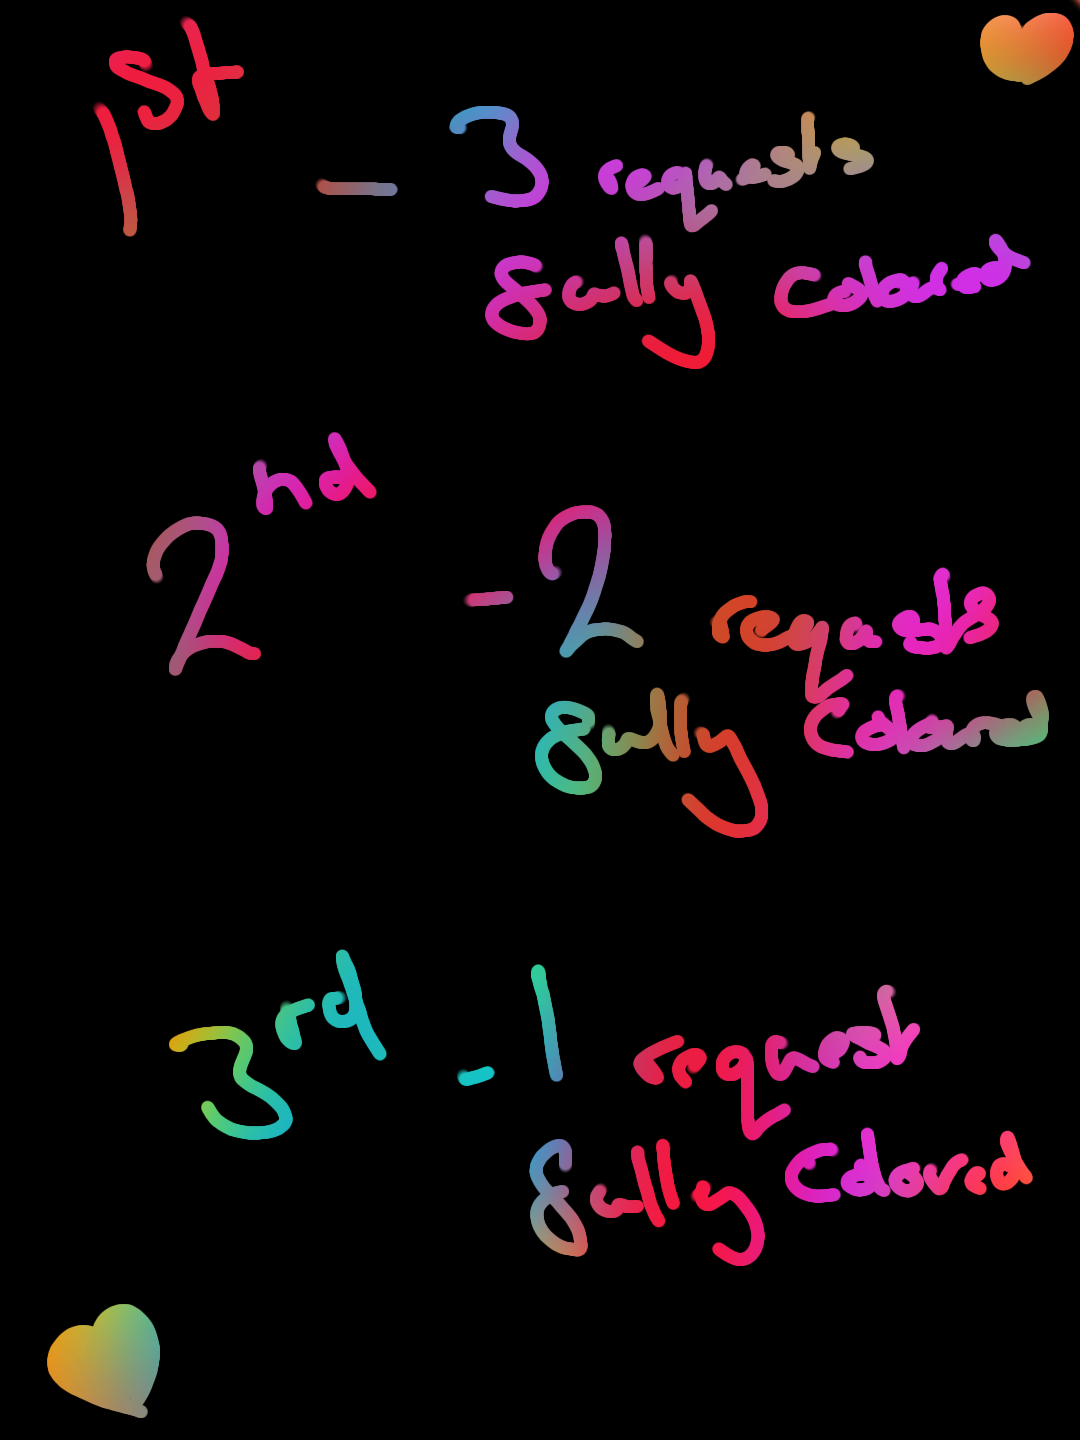 1st - 3 requests
fully Colored
2nd - 2 requests
fully Colored
3rd - 1 request
fully Colored